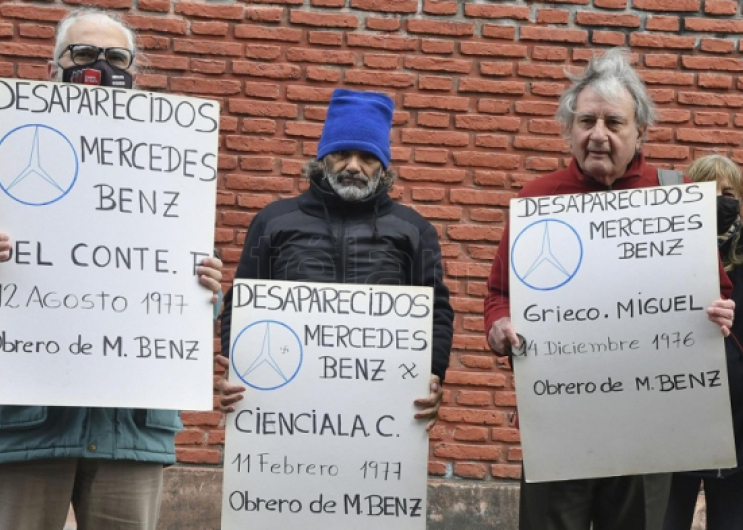 DESAPARECIDOS
MERCEDES
BENZ
DEL CONTE.
12 AGOSTO 1977
Obrero de M. BENZ
DESAPARECIDOS
MERCEDES
BENZ
CIENCIALA. C.
11 Febrero 1977
Obrero de M. BENZ
DESAPARECIDOS
MERCEDES
BENZ
Grieco. MIGUEL
14 Diciembre 1976
Obrero de M. BENZ